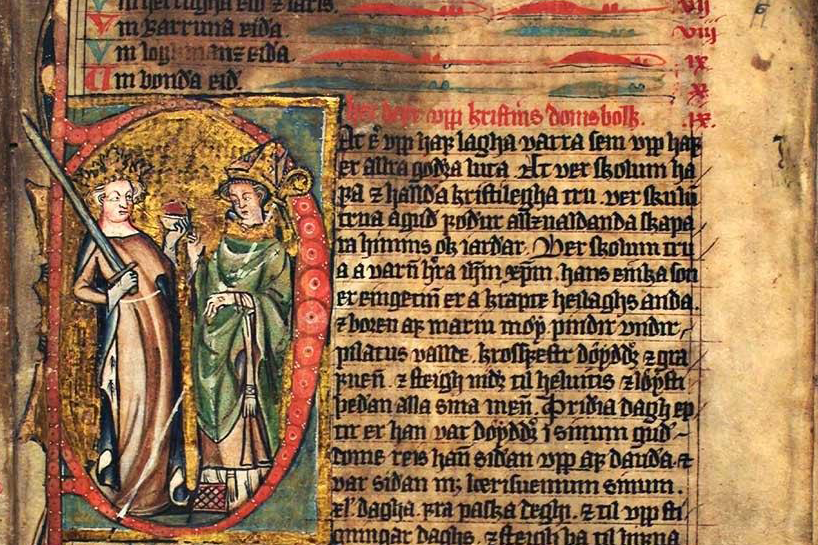 Vm hertugha eid z iarls. vij
Vm barruna eida. viij
Vm loghmanz eida. ix
Vm bonda eid. x
Her hefr vpp kristins doms bolk.
Þat er vpp haf lagha varra sem vpp haf
er allra godra luta. At ver skolum ha
fa z hallda kristilegha tru. ver skulu
trua a gud fodur allzualdanda skapa
ra himins ok iardar. Ver skolum tru
a a varn hra ihm xpm. hans einka son
er eingetin er a krapte heilaghs anda.
z boren af mariu møy. pindr vndir
pilatus vallde. krossfestr døyddr z gra
fuen. z steigh nidr til heluitis z løysti
þedan alla sina men. Þridia dagh ep
tir er han var døyddr i sinum gud
dome reis han sidan vpp af dauda. z
var sidan m; lærisueinum sinum.
xl dagha. fra paska deghi. z til vpp sti
gningar daghs. z steigh þa til himna